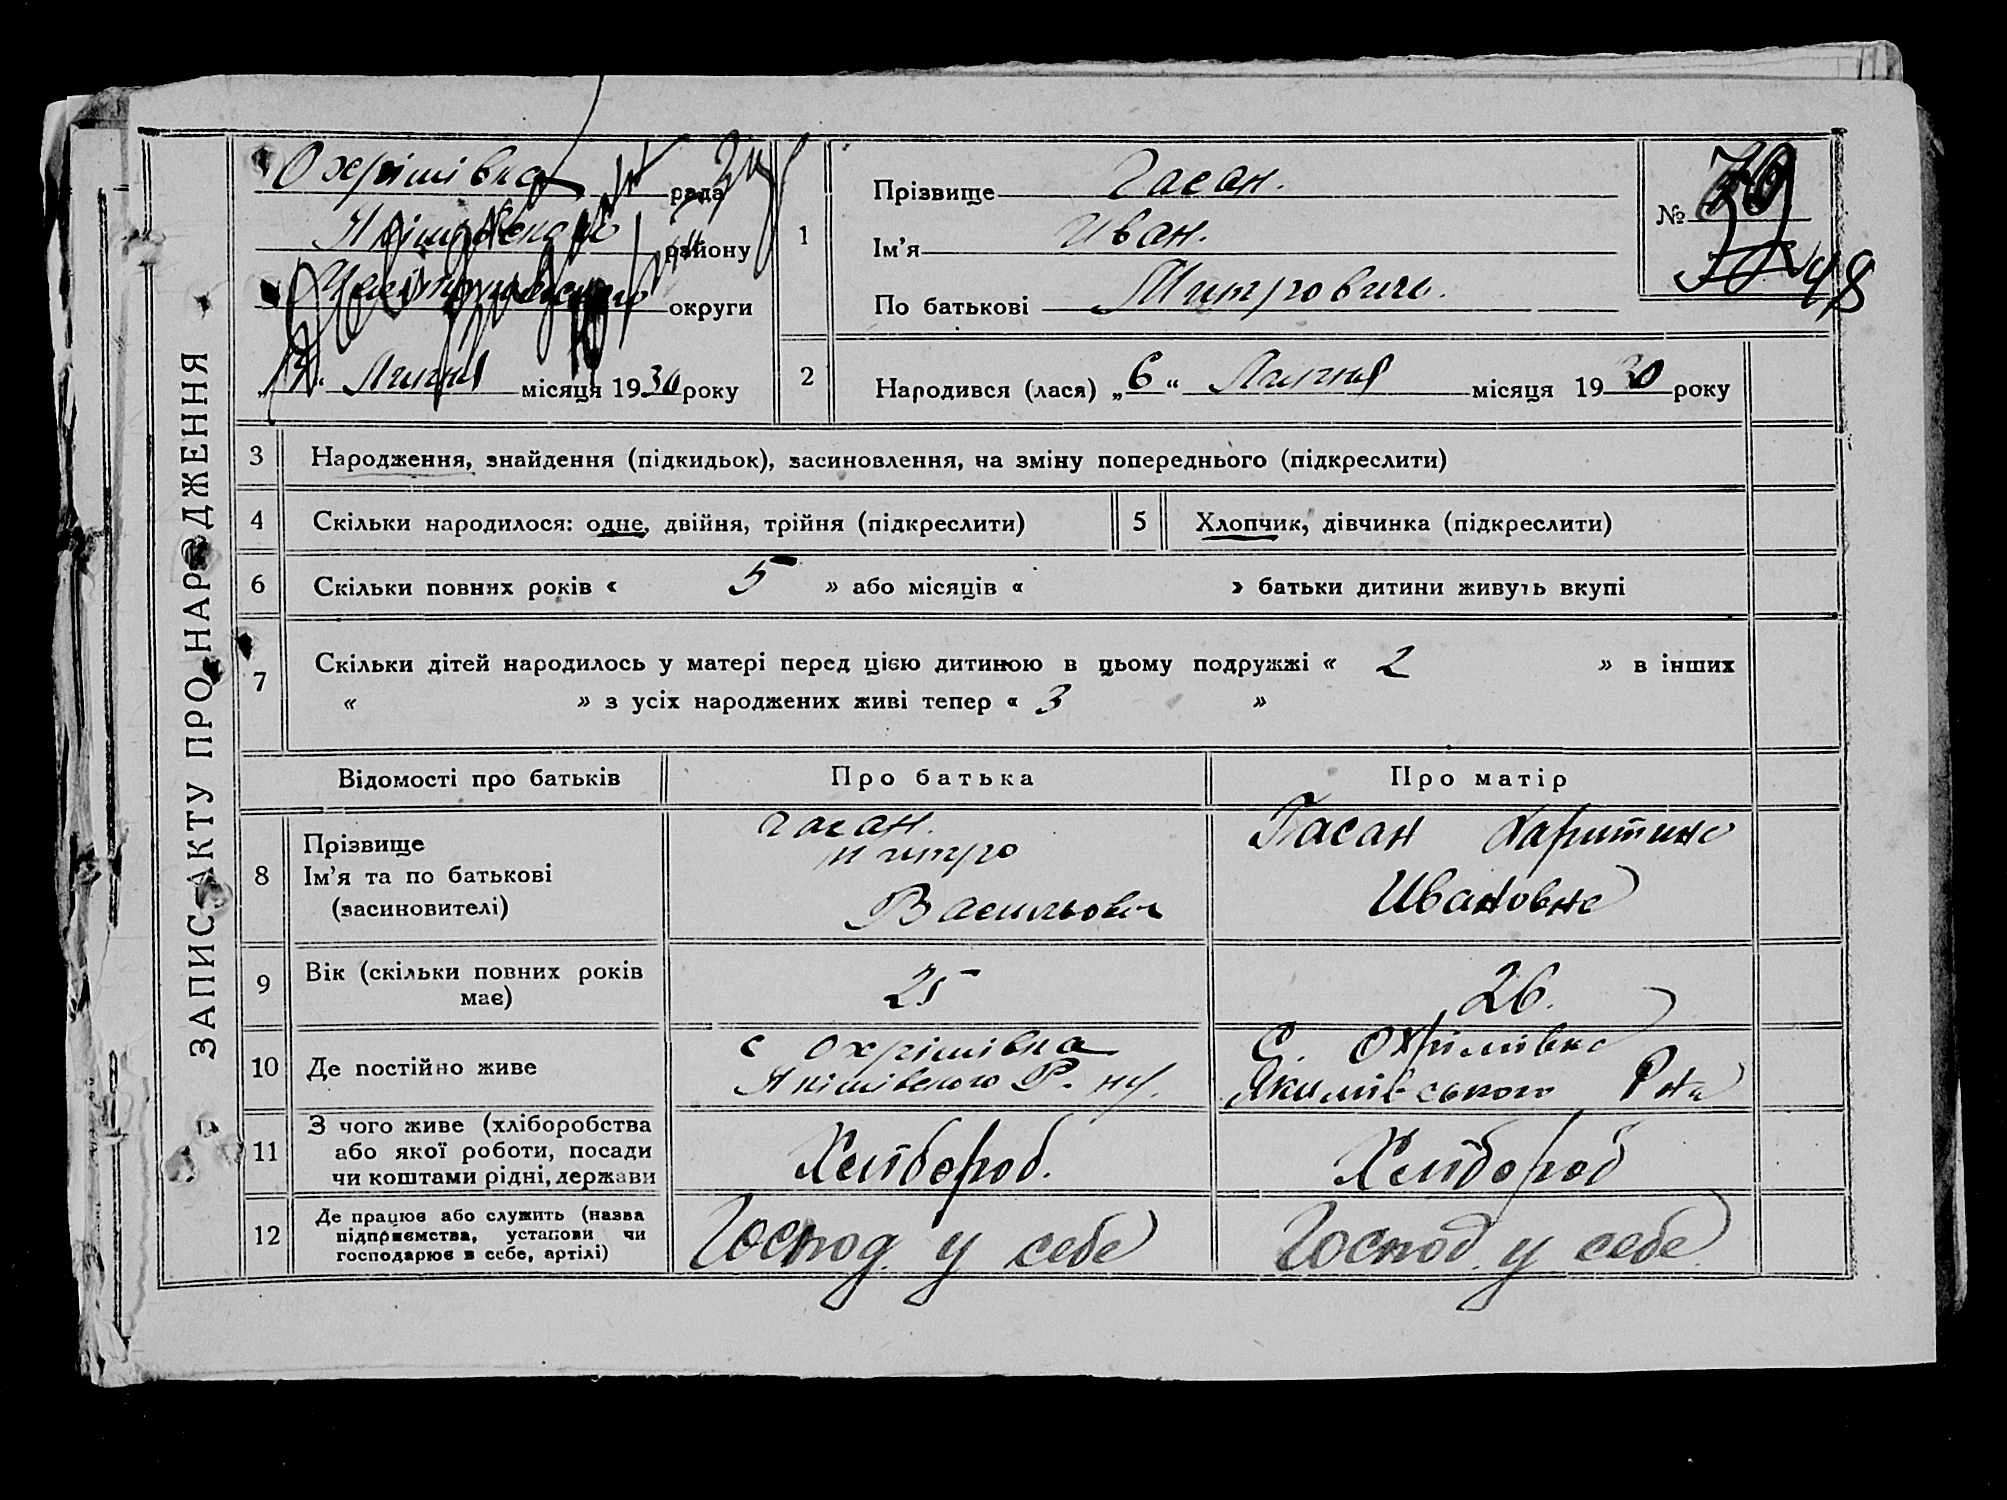 ЗАПИС АКТУ ПРО НАРОДЖЕННЯ
Охрімівка рада
району
округи
Липня місяця 1930 року
1
Прізвище Гасан.
Ім'я Иван.
По батькові Митровичь.
№
48
2 Народився (лася) „6“ Липня місяця 1930 року
3 Народження, знайдення (підкидьок), засиновлення, на зміну попереднього (підкреслити)
4 Скільки народилося: одне, двійня, трійня (підкреслити) 5 Хлопчик, дівчинка (підкреслити)
6 Скільки повних років « 5 » або місяців « » батьки дитини живуть вкупі
7 Скільки дітей народилось у матері перед цією дитиною в цьому подружжі « 2 » в інших
« » з усіх народжених живі тепер « 3 »
Відомості про батьків Про батька Про матір
8 Прізвище
Ім'я та по батькові
(засиновителі)
Гасан.
Митро
Васильович
Гасан Харитина
Ивановна
9 Вік (скільки повних років
має)
25
26.
10 Де постійно живе
с Охрімівка
Якімівского Р-ну.
С. Охрімівка
Якимівського Р-на
11 З чого живе (хліборобства
або якої роботи, посади
чи коштами рідні, держави
Хлібороб.
Хлібороб
12 Де працює або служить (назва
підприємства, установи чи
господарює в себе, артілі)
Господ. у себе
Господ. у себе